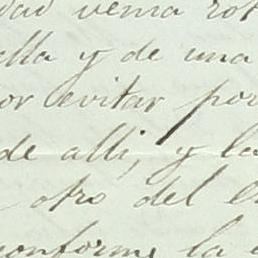 dad venia rot
ella y de una
or evitar por
de alli, y la
otro del e
conforme la